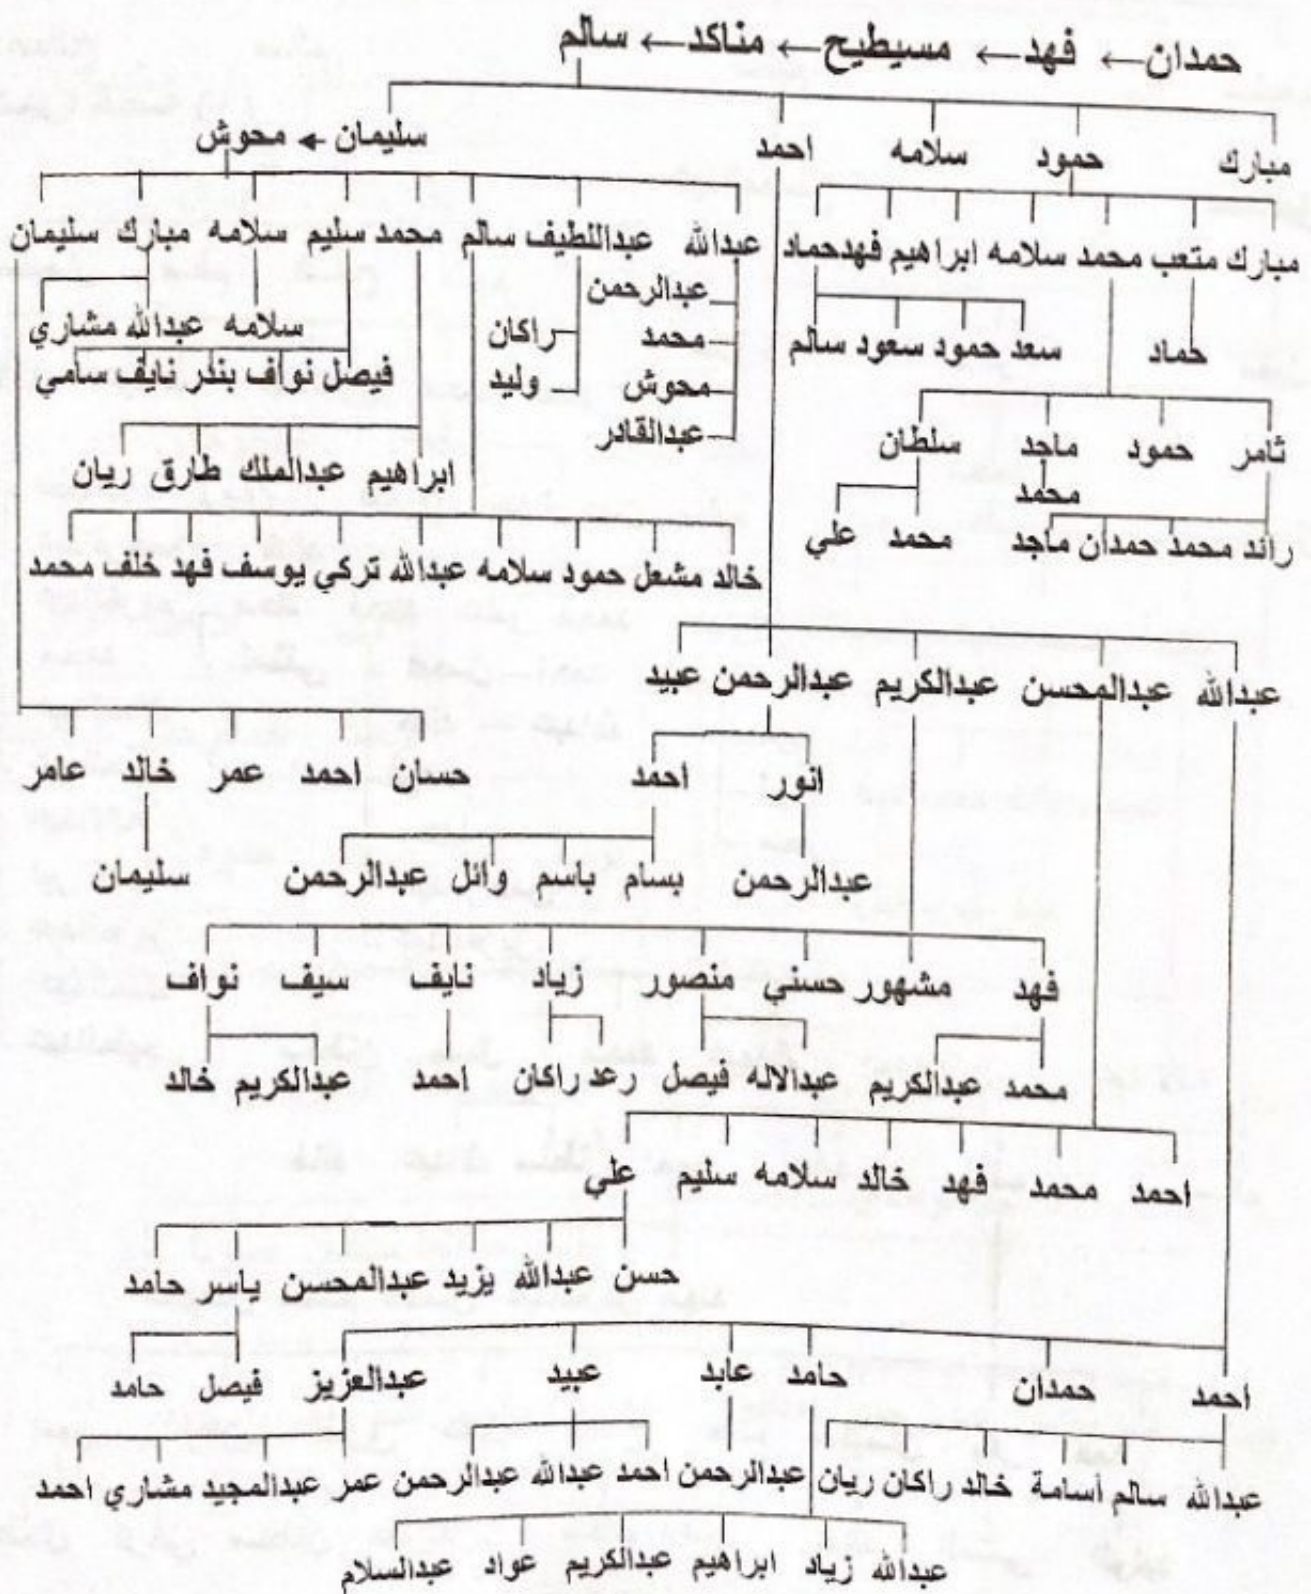 حمدان ← فهد ← مسيطيح ← مناكد ← سالم
مبارك حمود سلامه احمد سليمان ← محوش
مبارك متعب محمد سلامه ابراهيم فهد حماد
عبدالله عبداللطيف سالم محمد سليم سلامه مبارك سليمان
عبدالرحمن
محمد
محوش
عبدالقادر
راكان
وليد
سلامه عبدالله مشاري
فيصل نواف بندر نايف سامي
حماد سعد حمود سعود سالم
ثامر حمود ماجد سلطان
محمد
ابراهيم عبدالملك طارق ريان
رائد محمد حمدان ماجد محمد علي
خالد مشعل حمود سلامه عبدالله تركي يوسف فهد خلف محمد
عبدالله عبدالمحسن عبدالكريم عبدالرحمن عبيد
انور احمد حسان احمد عمر خالد عامر
عبدالرحمن بسام باسم وائل عبدالرحمن سليمان
فهد مشهور حسني منصور زياد نايف سيف نواف
محمد عبدالكريم عبدالاله فيصل رعد راكان احمد عبدالكريم خالد
احمد محمد فهد خالد سلامه سليم علي
حسن عبدالله يزيد عبدالمحسن ياسر حامد
احمد حمدان حامد عابد عبيد عبدالعزيز فيصل حامد
عبدالله سالم أسامة خالد راكان ريان عبدالرحمن احمد عبدالله عبدالرحمن عمر عبدالمجيد مشاري احمد
عبدالله زياد ابراهيم عبدالكريم عواد عبدالسلام